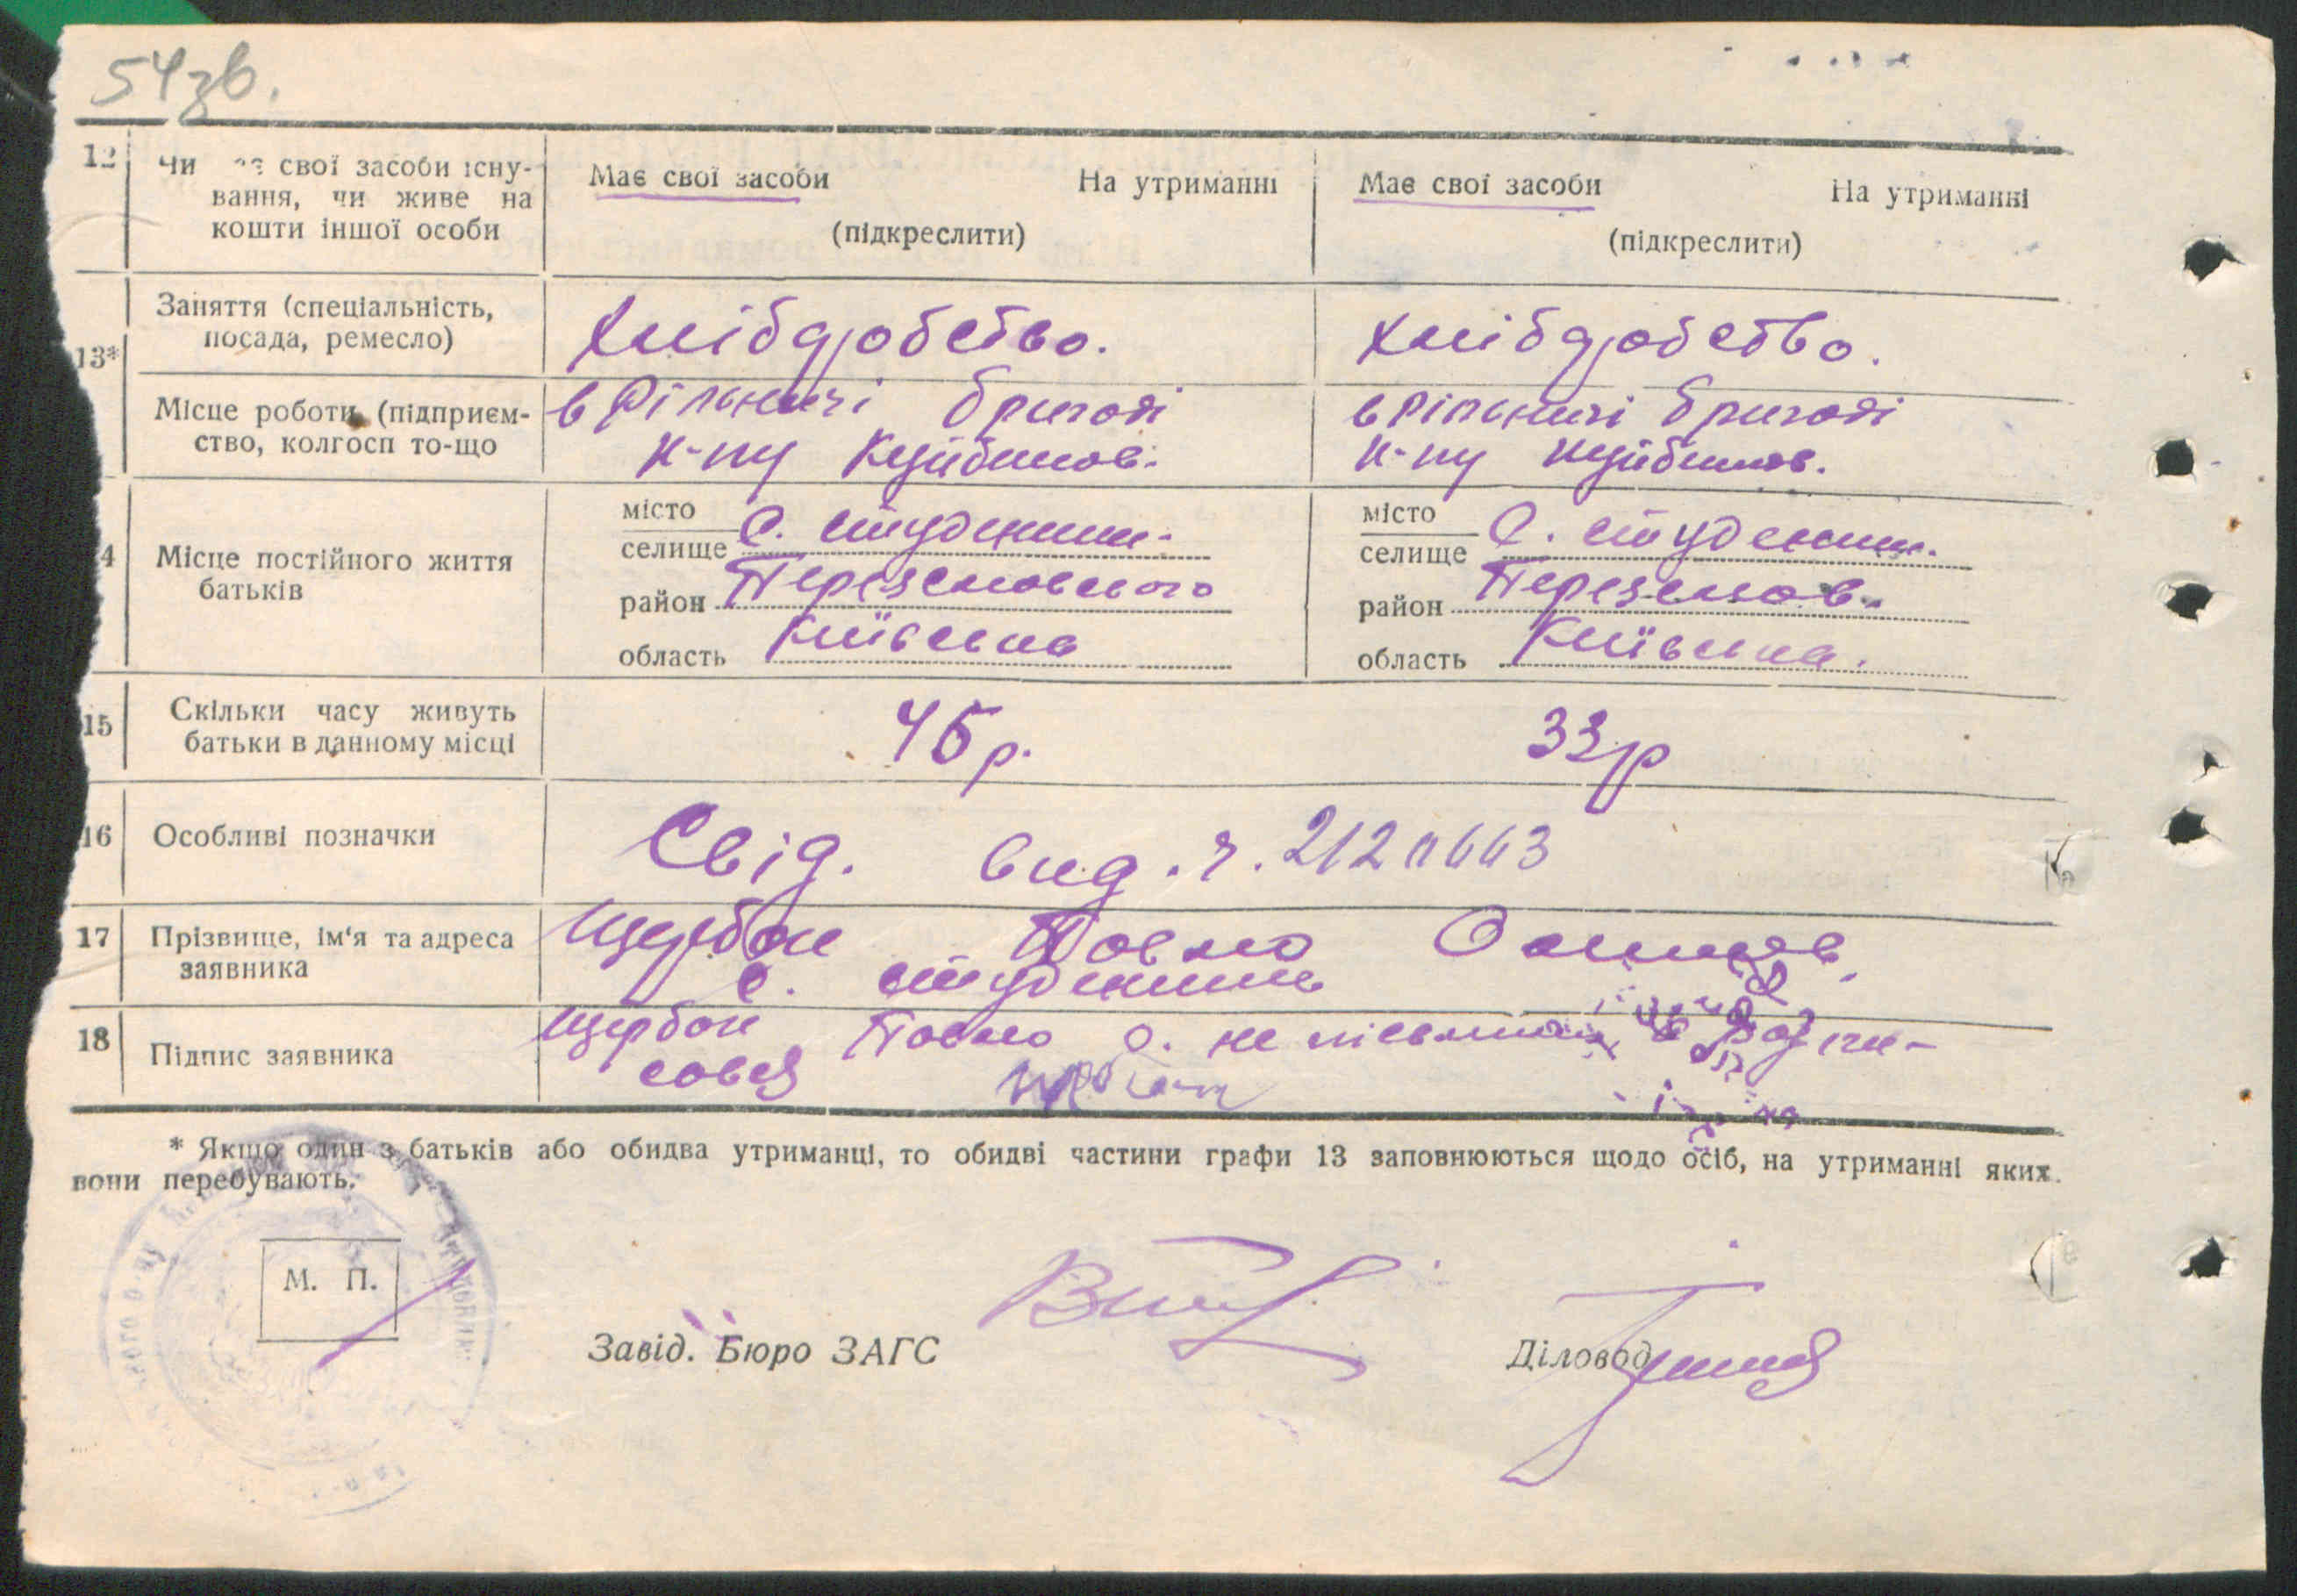 54зв.
12 Чи має свої засоби існу- Має свої засоби На утриманні Має свої засоби На утриманні
вання, чи живе на
кошти іншої особи (підкреслити) (підкреслити)
13* Заняття (спеціальність, Хлібдробство. Хлібдробство.
посада, ремесло)
Місце роботи (підприєм- в Рільничі бригаді в рільничі бригаді
ство, колгосп то-що к-пу Куйбишов. к-пу Куйбишов.
4 Місце постійного життя
батьків
місто
селище С. Студеники
район Переяславського
область Київська
місто
селище С. Студеник.
район Переяслав.
область Київська.
15 Скільки часу живуть 45р. 33р
батьки в данному місці
16 Особливі позначки Свід. вид. ч. 212
17 Прізвище, ім'я та адреса Щербак Павло
заявника с. Студеники
18 Підпис заявника Щербак Павло О. не письмен за розпи-
сався
* Якщо один з батьків або обидва утриманці, то обидві частини графи 13 заповнюються щодо осіб, на утриманні яких
вони перебувають.
М. П.
Завід. Бюро ЗАГС Діловод